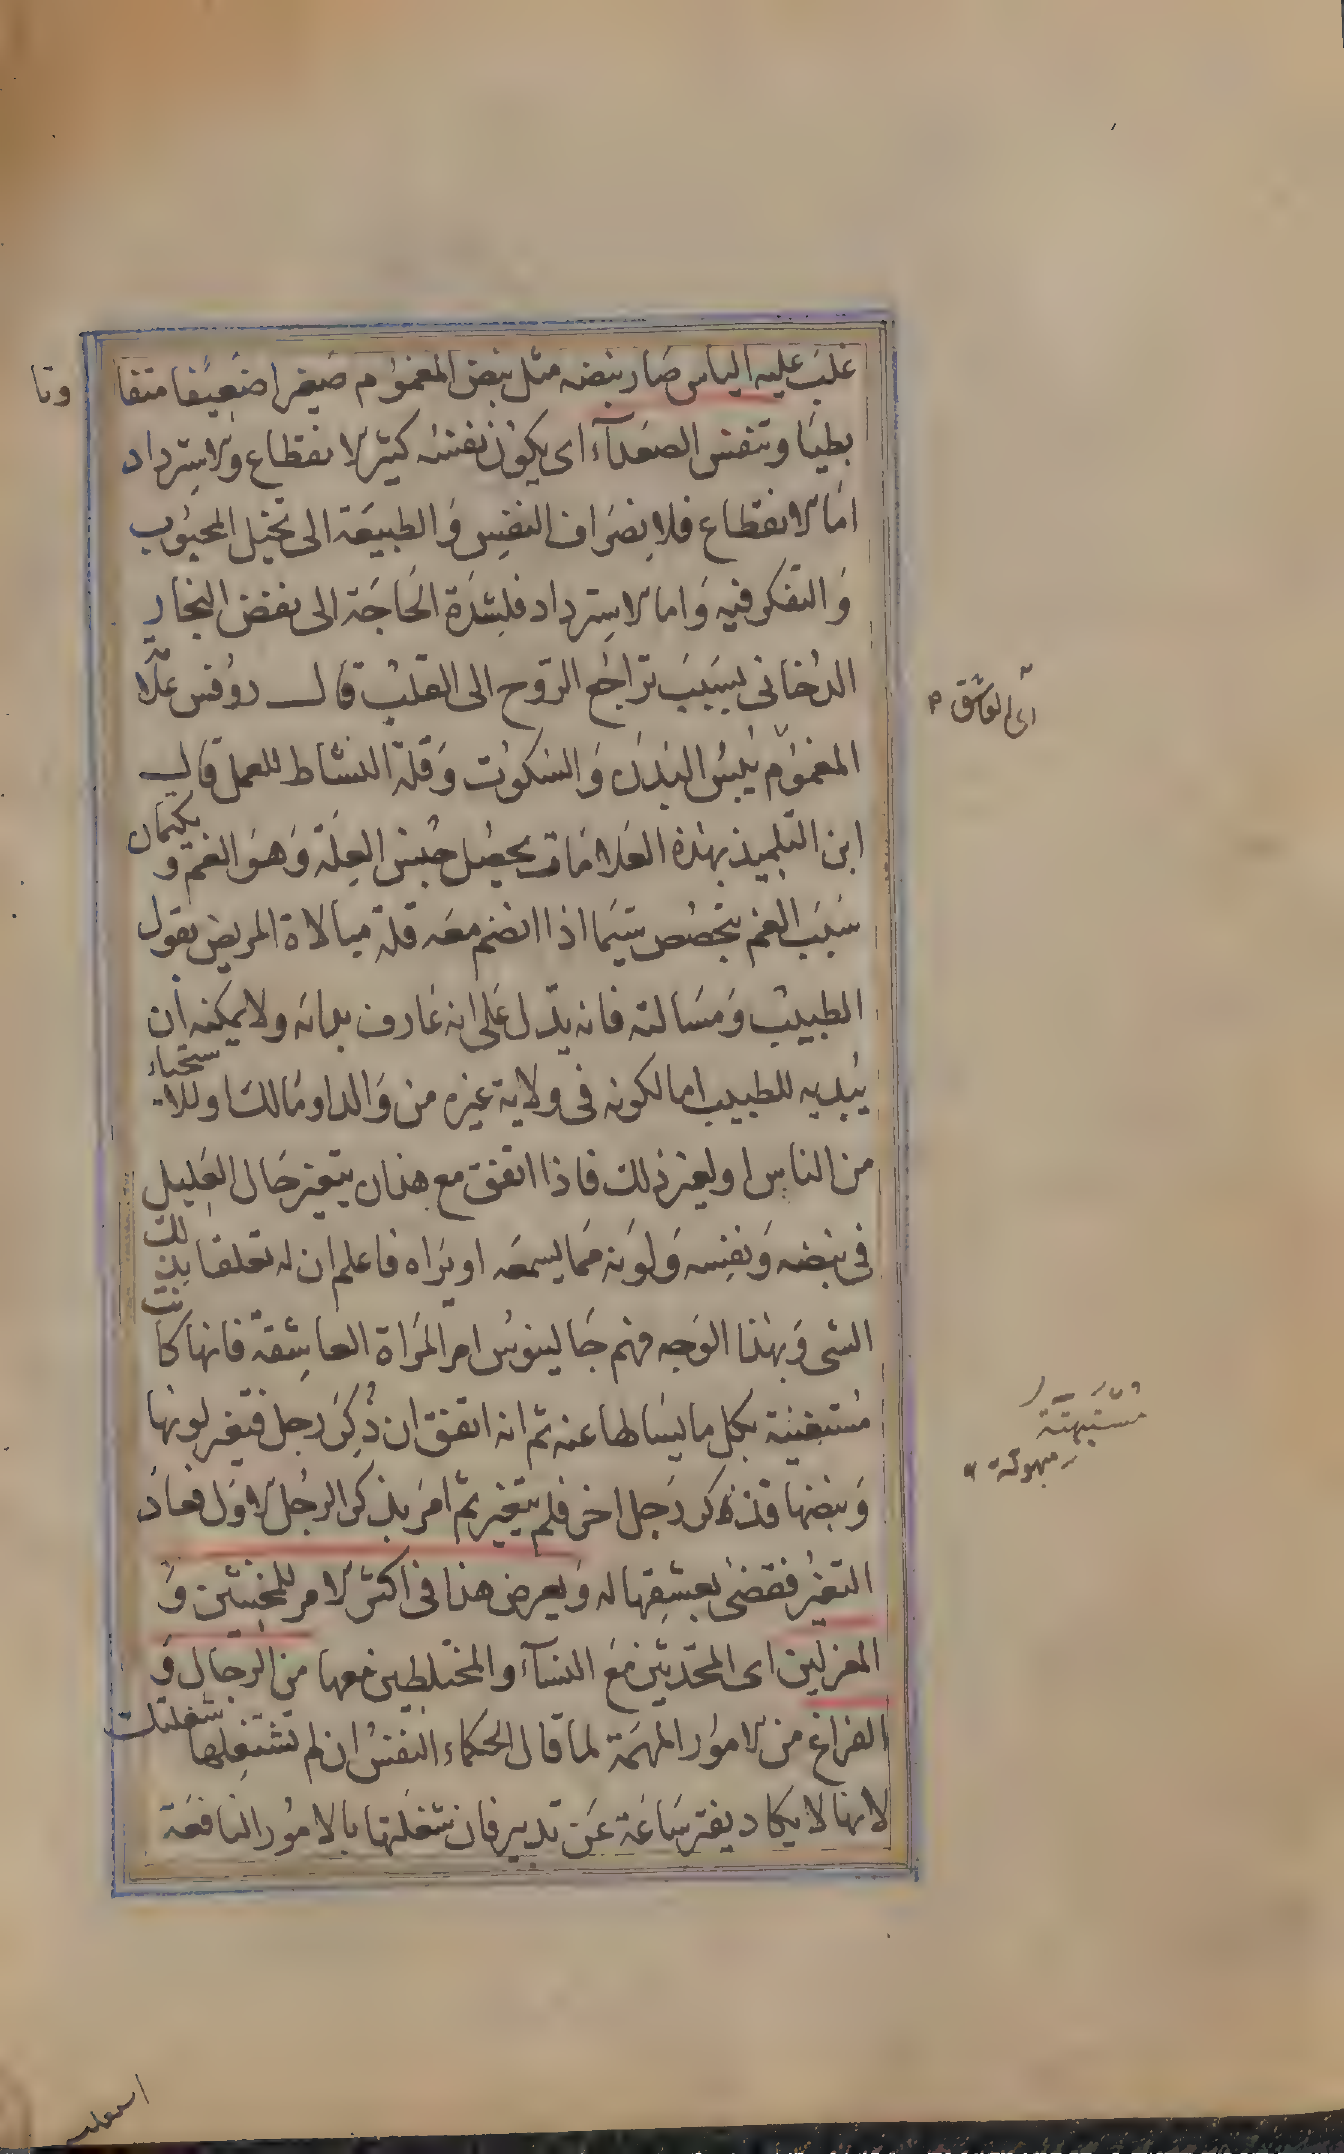 غلب عليه الياس صار نبضه مثل نبض المغموم صغيرا ضعيفا متفا
وتا
بطيا وتنفس الصعدآء اى يكون نفسه كثير الانقطاع والاسترداد
اما الانقطاع فلانصراف النفس والطبيعة الى تخيل المحبوب
والتفكر فيه واما الاسترداد فلشدة الحاجة الى نفض البخار
الدخانى بسبب تراجع الروح الى القلب قال روفس علامة
اى العاشق
المغموم يبس البدن والسكوت وقلة النشاط للعمل قال
ابن التلميذ بهذه العلامات يحصل جنس العلة وهو الغم و
يكتمان
سبب الغم يتخصص سيما اذا انضم معه قلة مبالاة المريض بقول
الطبيب ومسالته فانه يدل على انه عارف بدائه ولا يمكنه أن
يبديه للطبيب اما لكونه فى ولاية غيره من والد او مالك او للا
ستحياء
من الناس او لغير ذلك فاذا اتفق مع هذان يتغير حال العليل
فى نبضه ونفسه ولونه مما يسمعه او يراه فاعلم ان له تعلقا بذ
لك
الشى وبهذا الوجه فهم جالينوس امر المراة العاشقة فانها كا
نت
بكل ما يساطها عنه ثم انه اتفق ان ذكر رجل فتغير لونها
ونبضها فذكر رجل اخر فلم يتغير ثم امر بذكر الرجل الاول فعاد
التغير فقضى بعشقها له ويعرض هذا فى اكثر الامر للمخنثين و
المغزلين اى المحدثين مع النسآء والمختلطين معها من الرجال و
الفراغ من الامور المهمة لما قال الحكماء النفس ان لم تشتغلها
شغلتك
لانها لا يكاد يفتر ساعة عن تدبير فان شغلتها بالامور النافعة